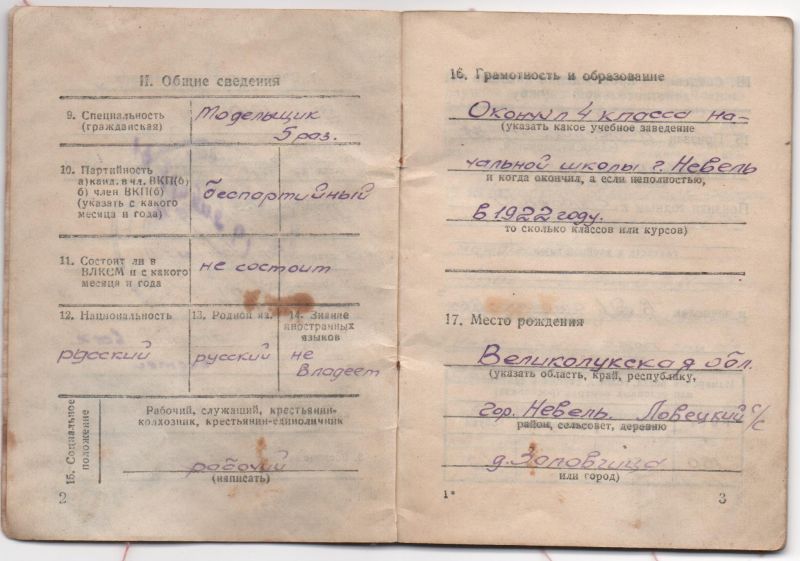 II. Общие сведения
9. Специальность
(гражданская)
Модельщик
5 раз.
10. Партийность
а) канд. в чл. ВКП(б)
б) член ВКП(б)
(указать с какого
месяца и года)
беспартийный
11. Состоит ли в
ВЛКСМ и с какого
месяца и года
не состоит
12. Национальность
русский
13. Родной яз.
русский
14. Знание
иностранных
языков
не
владеет
15. Социальное
положение
Рабочий, служащий, крестьянин-
колхозник, крестьянин-единоличник
рабочий
(написать)
2
16. Грамотность и образование
Окончил 4 класса на-
(указать какое учебное заведение
чальной школы г. Невель
и когда окончил, а если неполностью,
в 1922 году.
то сколько классов или курсов)
17. Место рождения
Великолукская обл.
(указать область, край, республику,
гор. Невель Ловецкий с/с
район, сельсовет, деревню
д.
или город)
1*
3